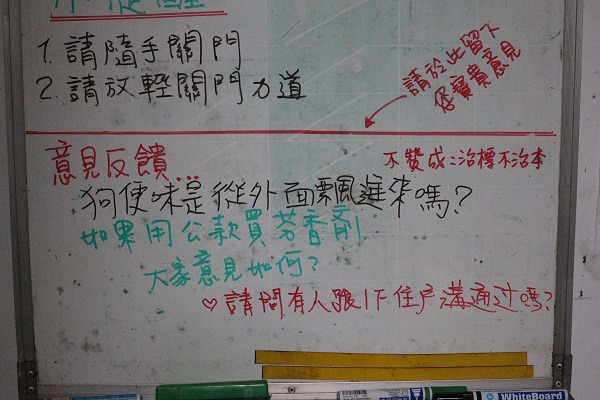 1. 請隨手關門
2. 請放輕關門力道
請於此留下
您寶貴意見
意見反饋...
不贊成:治標不治本
狗便味是從外面飄進來嗎?
如果用公款買芳香劑
大家意見如何?
♡請問有人跟1F住戶溝通过嗎?
WhiteBoard